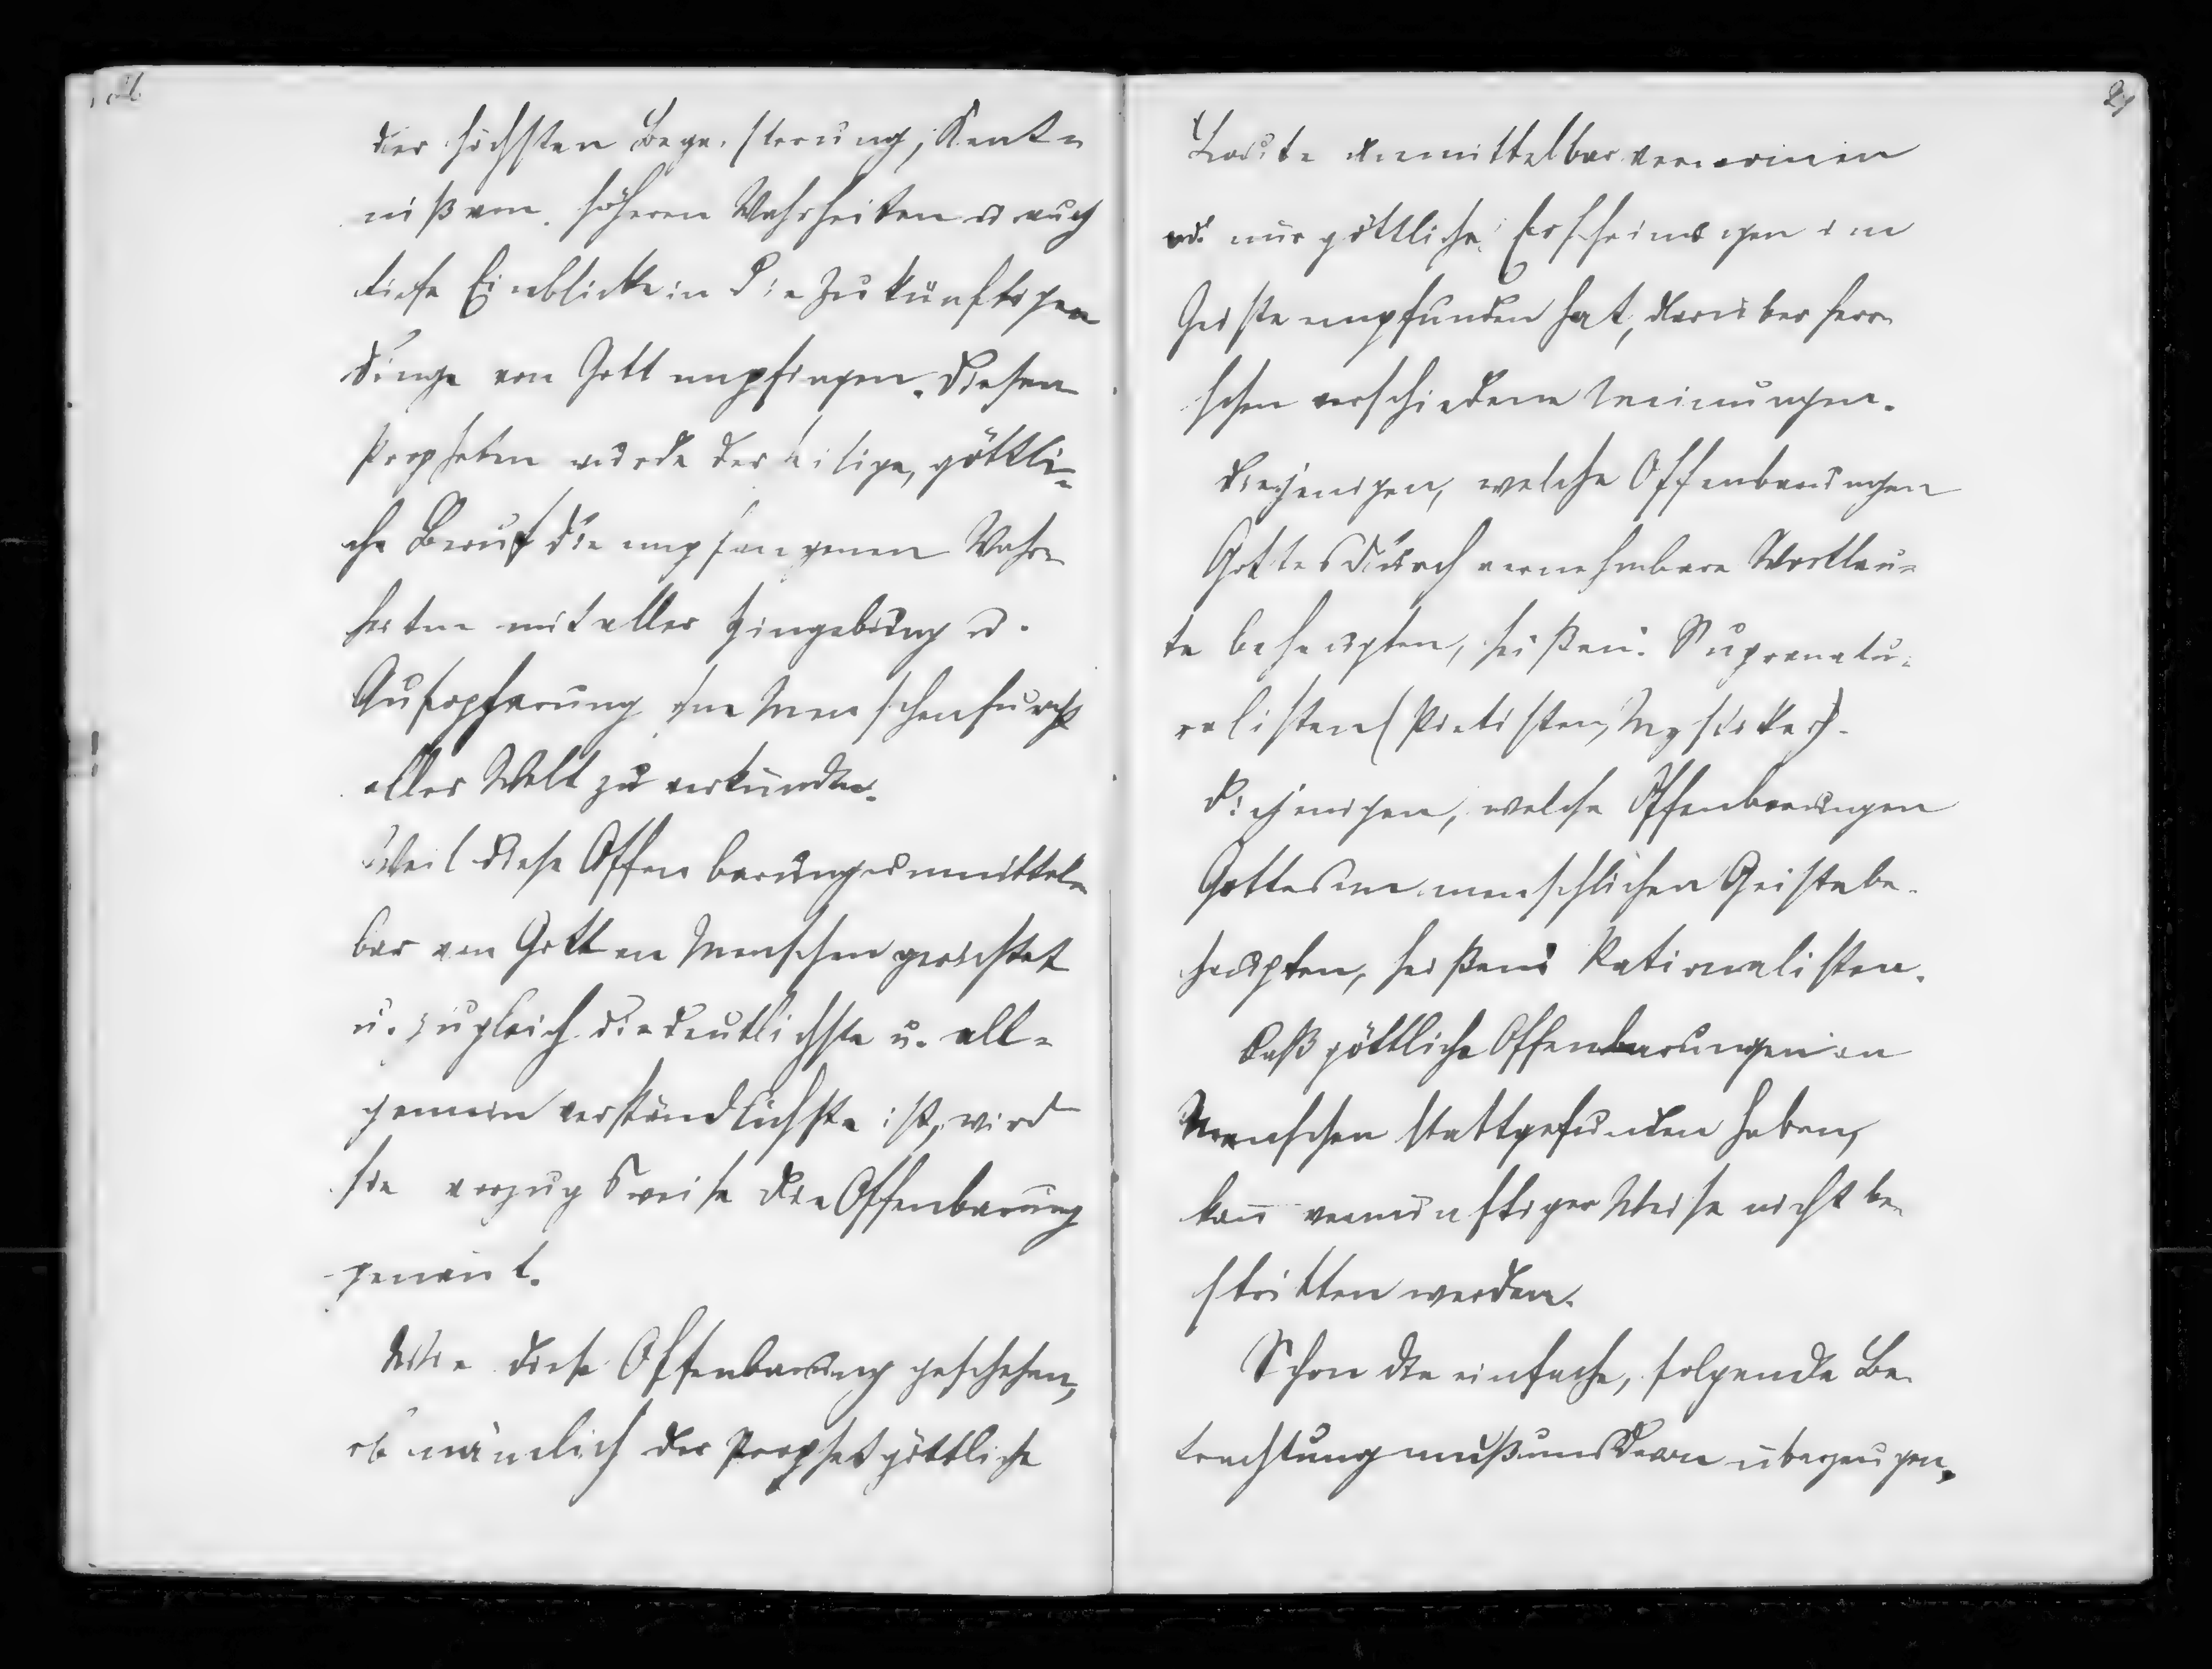 der höchsten Begeisterung, Kent-
niß von höheren Wahrheiten u. auch
tiefe Einblicke in die zukünftigen
Dinge von Gott empfingen. Diesen
Propheten wurde der heilige, göttli-
che Beruf die empfangenen Wahr-
heiten mit aller Hingebung u.
Aufopferung ohne Menschenfurcht
aller Welt zu verkünden.
Weil diese Offenbarung unmittel-
bar von Gott an Menschen gerichtet
u. zugleich die deutlichste u. all-
gemein verständlichste ist, wird
sie vorzugsweise die Offenbarung
genan̄t.
Wie diese Offenbarung geschehen,
ob nämlich der Prophet göttliche
29
Laute unmittelbar vernom̄en
od. nur göttliche Erscheinungen im
Geiste empfunden hat, darüber herr-
schen verschiedene Meinungen.
Diejenigen, welche Offenbarungen
Gottes durch vernehmbare Wortlau-
te behaupten, heißen: Supranatu-
ralisten (Pietisten, Mystiker).
Diejenigen, welche Offenbarungen
Gottes im menschlichen Geiste be-
haupten, heißen: Rationalisten.
Daß göttliche Offenbarungen an
Menschen stattgefunden haben,
kan̄ vernünftiger Weise nicht be-
stritten werden.
Schon die einfache, folgende Be-
trachtung muß uns davon überzeugen,